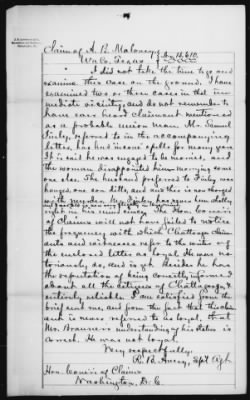 Claim of A. B. Maloney
Waco, Texas
No. 18,610.
I did not take the time to go and
examine this case on the ground. I have
examined two or three cases in that im
mediate vicinity, and do not remember to
have ever heard claimant mentioned
as a probable union man. Mr. Samuel
referred to in the accompanying
letter, has had insane spells for many years
It is said he was engaged to be married, and
the woman disappointed him marrying some
one else. The husband preferred to
hanged, one son did, and this is now charged
with murder.
right in his mind since. The Hon. Comrs.
of Claims will not have failed to notice
the frequency with which Chattooga claim
ants and witnesses refer to the writer of
the enclosed letter as loyal. He was no
toriously so, and is
the reputation of being correctly informed
about all the citizens of Chattooga, &
entirely reliable. I am satisfied from the
brief sent me, and from the fact that this claim
ant is never referred to as loyal, that
Mr. Brawner's understanding of his status
is correct. He was not loyal.
Very respectfully
R. B. Avery, Spl. Agt.
Hon. Comrs. of Claims
Washington, D.C.